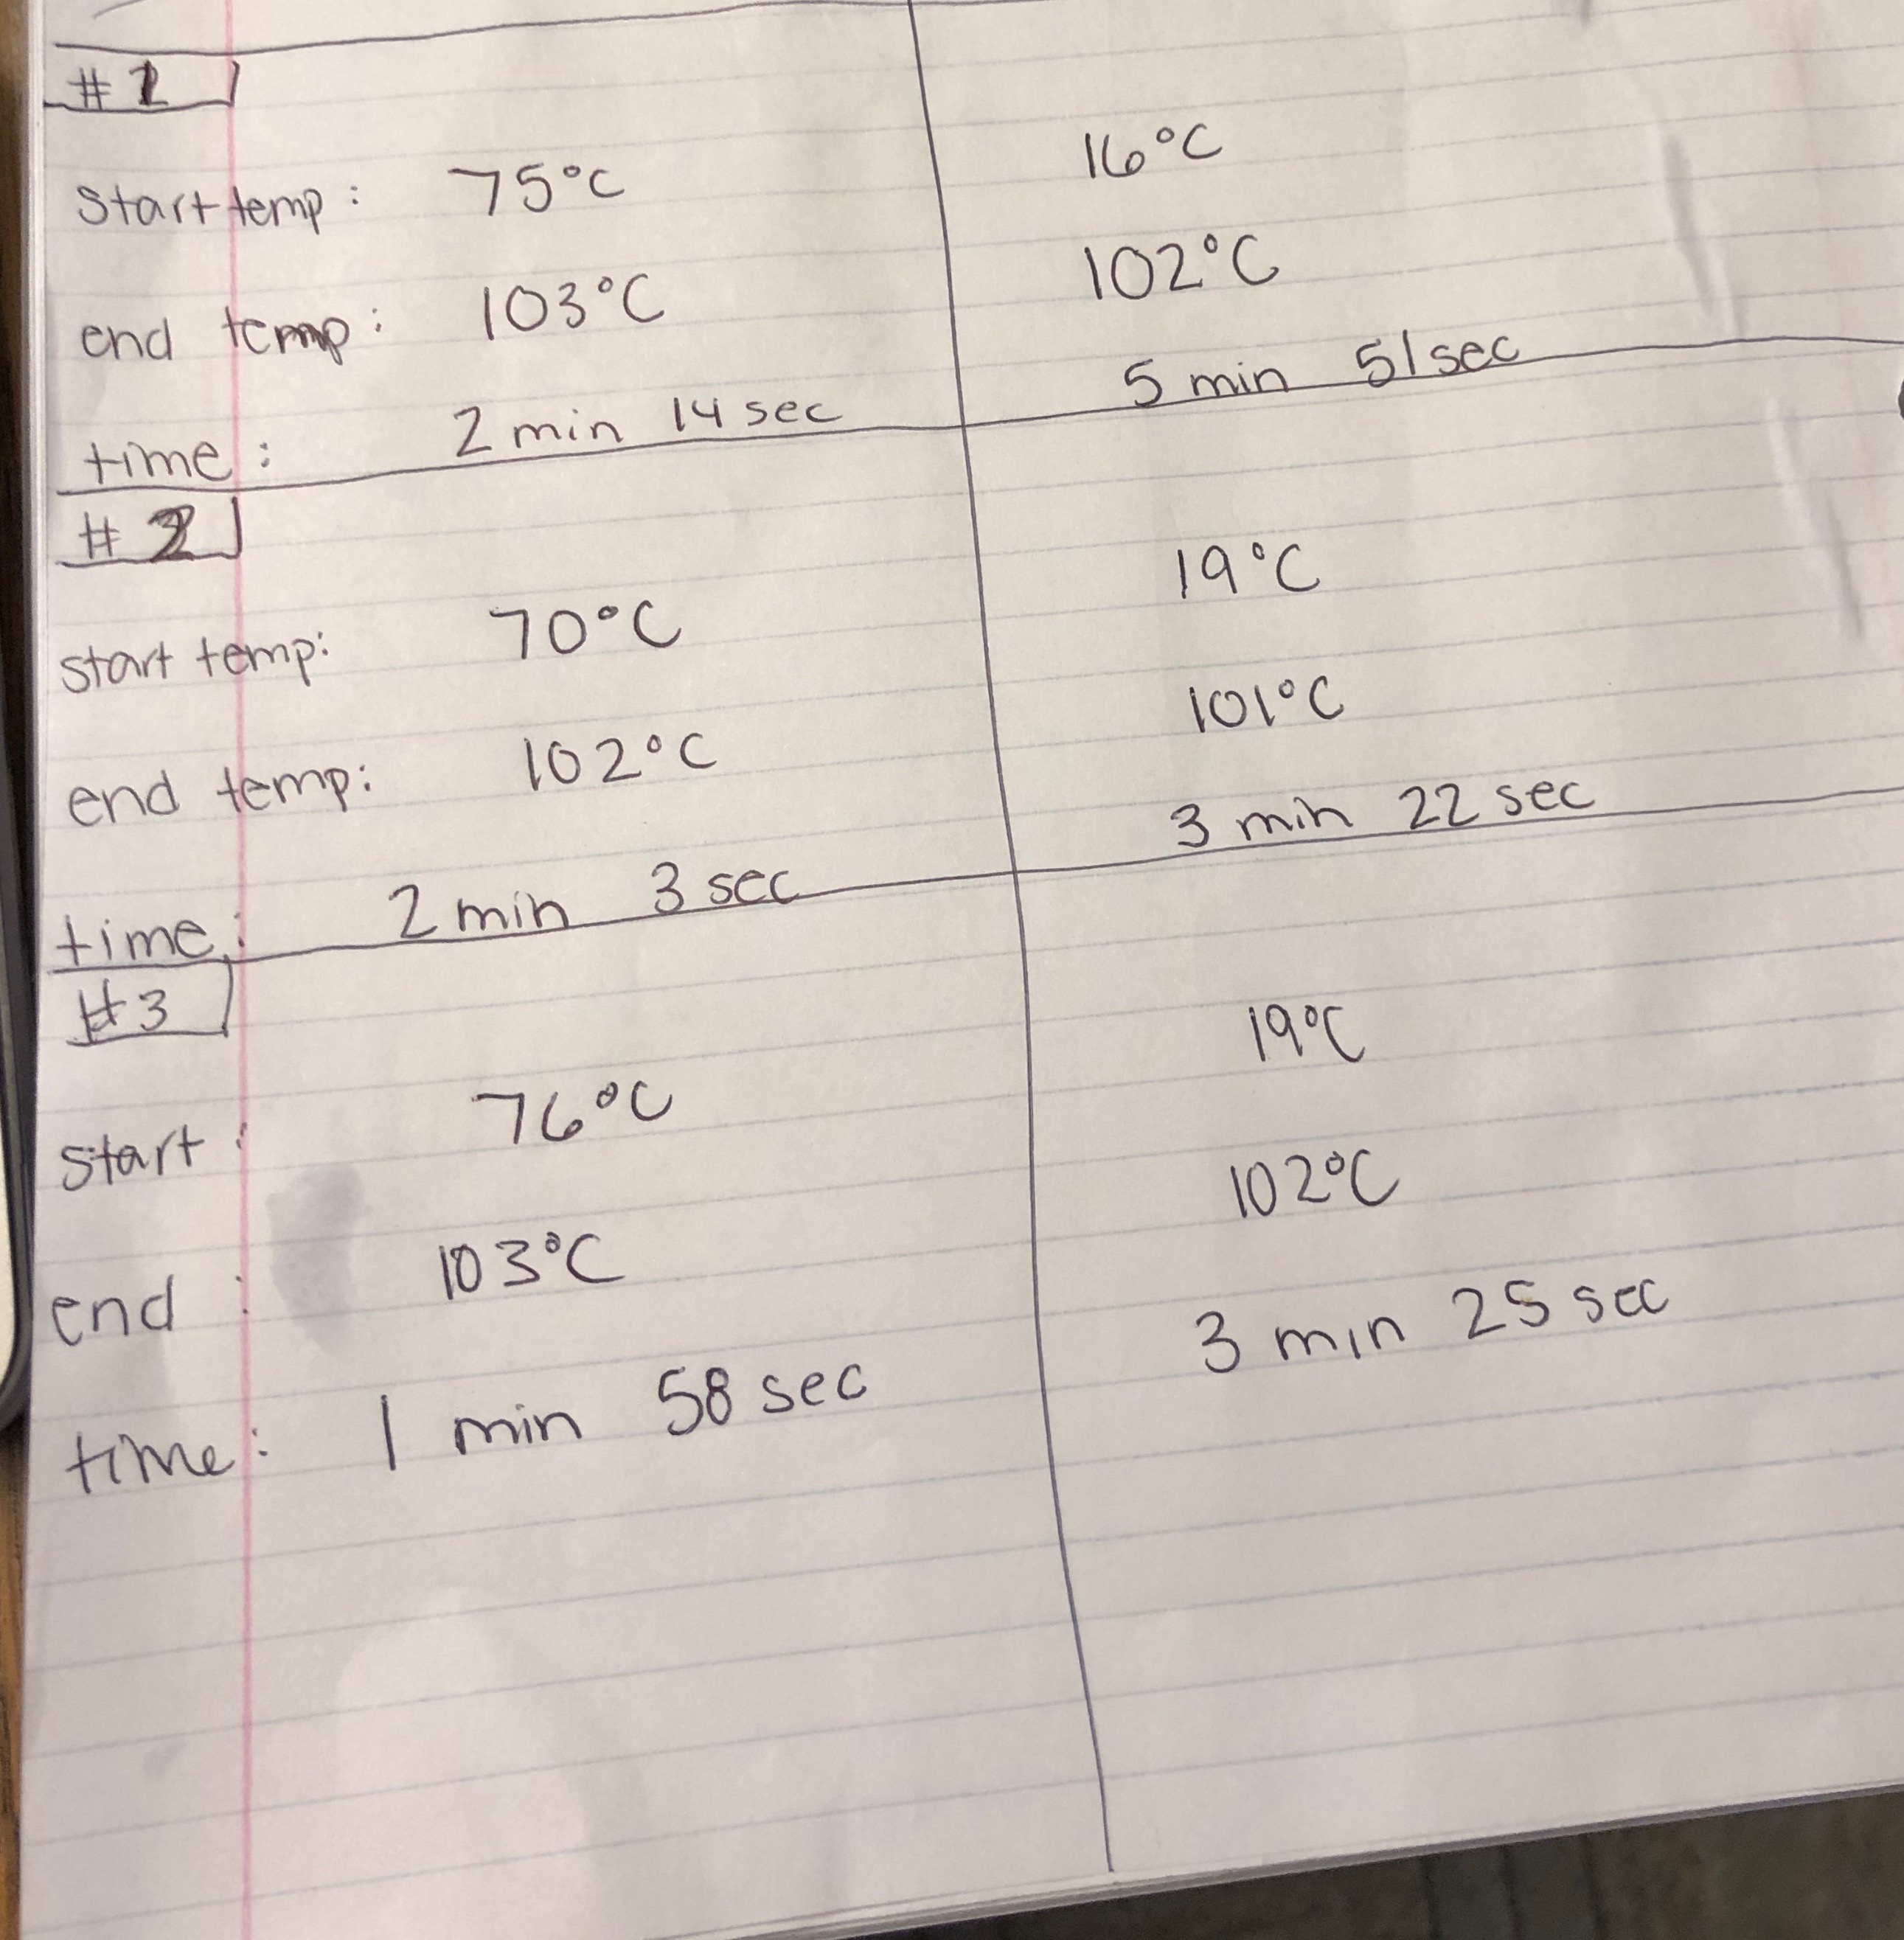 #1
start temp: 75°C 16°C
end temp: 103°C 102°C
time: 2 min 14 sec 5 min 51 sec
#2
start temp: 70°C 19°C
end temp: 102°C 101°C
time: 2 min 3 sec 3 min 22 sec
#3
start: 76°C 19°C
end: 103°C 102°C
time: 1 min 58 sec 3 min 25 sec